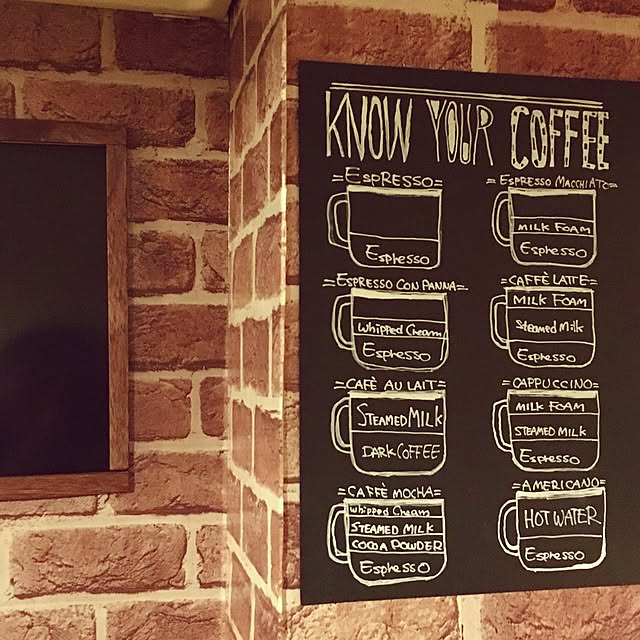 KNOW YOUR COFFEE
=ESPRESSO=
Espresso
=ESPRESSO MACCHIATO=
MILK FOAM
Espresso
=ESPRESSO CON PANNA=
Whipped Cream
Espresso
=CAFFÈ LATTE=
MILK FOAM
Steamed Milk
Espresso
=CAFÈ AU LAIT=
STEAMED MILK
DARK COFFEE
=CAPPUCCINO=
MILK FOAM
STEAMED MILK
Espresso
=CAFFÈ MOCHA=
Whipped Cream
STEAMED MILK
COCOA POWDER
Espresso
=AMERICANO=
HOT WATER
Espresso